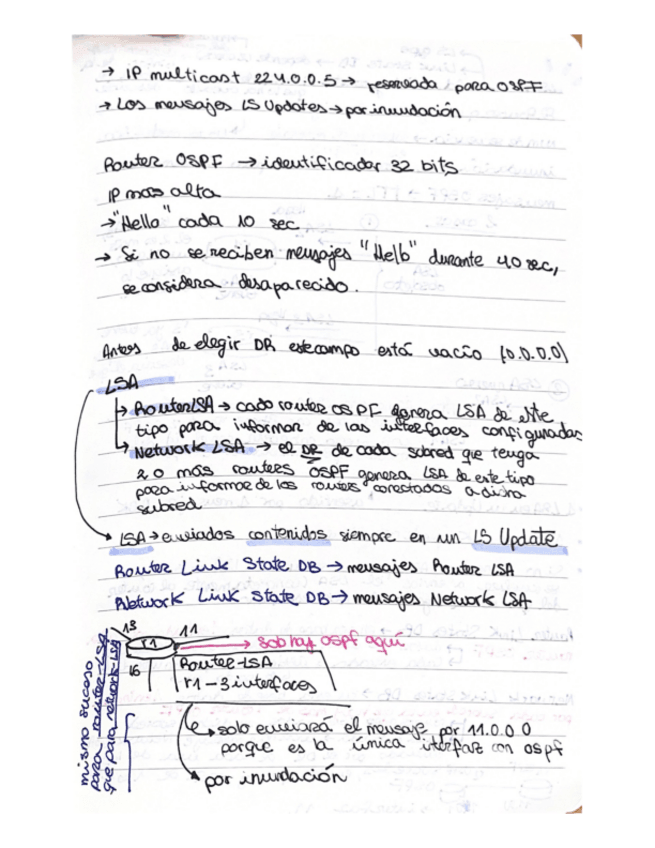 → IP multicast 224.0.0.5 → reservada para OSPF
→ Los mensajes LS Updates → por inundación
Router OSPF → identificador 32 bits
IP más alta
→ "Hello" cada 10 sec
→ Si no se reciben mensajes "Hello" durante 40 sec,
se considera desaparecido.
Antes de elegir DR este campo está vacío (0.0.0.0)
LSA
→ Router LSA → cada router OSPF genera LSA de este
tipo para informar de las interfaces configuradas
→ Network LSA → el DR de cada subred que tenga
2 o más routers OSPF genera LSA de este tipo
para informar de los routers conectados a dicha
subred
→ LSA → enviados contenidos siempre en un LS Update
Router Link State DB → mensajes Router LSA
Network Link State DB → mensajes Network LSA
13
11
r1
→ solo hay ospf aquí
16
Router-LSA
r1 - 3 interfaces
mismo suceso
para router-LSA
que para network-LSA
→ solo enviará el mensaje por 11.0.0.0
porque es la única interfaz con ospf
→ por inundación